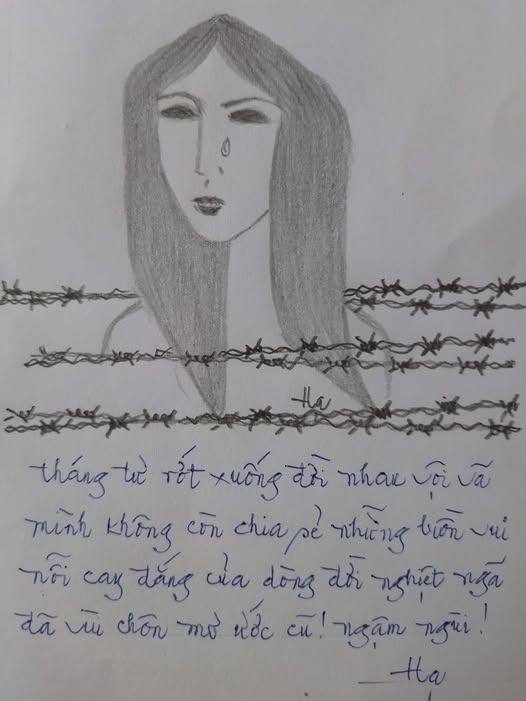 Hạ
tháng tư rớt xuống đời nhau vội vã
mình không còn chia sẻ những buồn vui
nỗi cay đắng của dòng đời nghiệt ngã
đã vùi chôn mơ ước cũ! ngậm ngùi!
Hạ